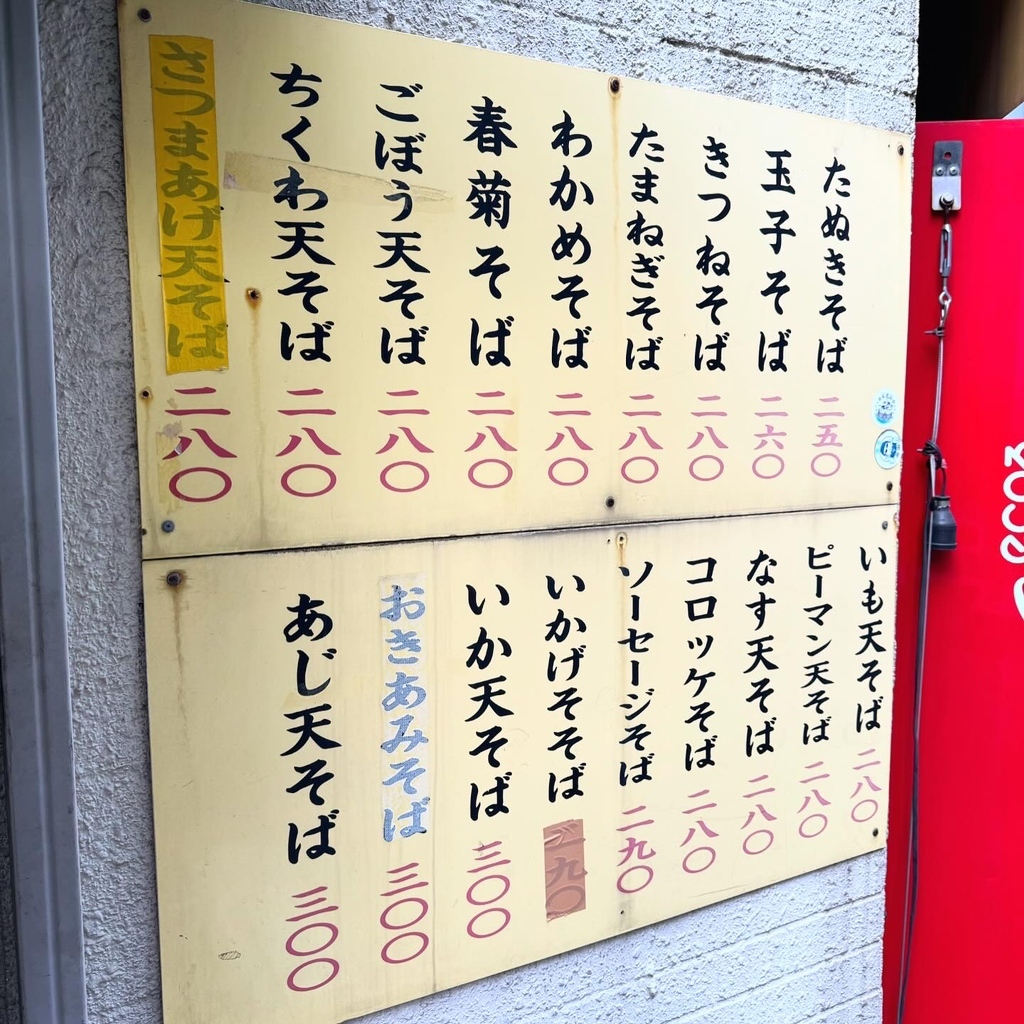 たぬきそば 二五〇
玉子そば 二六〇
きつねそば 二八〇
たまねぎそば 二八〇
わかめそば 二八〇
春菊そば 二八〇
ごぼう天そば 二八〇
ちくわ天そば 二八〇
さつまあげ天そば 二八〇
いも天そば 二八〇
ピーマン天そば 二八〇
なす天そば 二八〇
コロッケそば 二八〇
ソーセージそば 二九〇
いかげそそば 二九〇
いか天そば 三〇〇
おきあみそば 三〇〇
あじ天そば 三〇〇